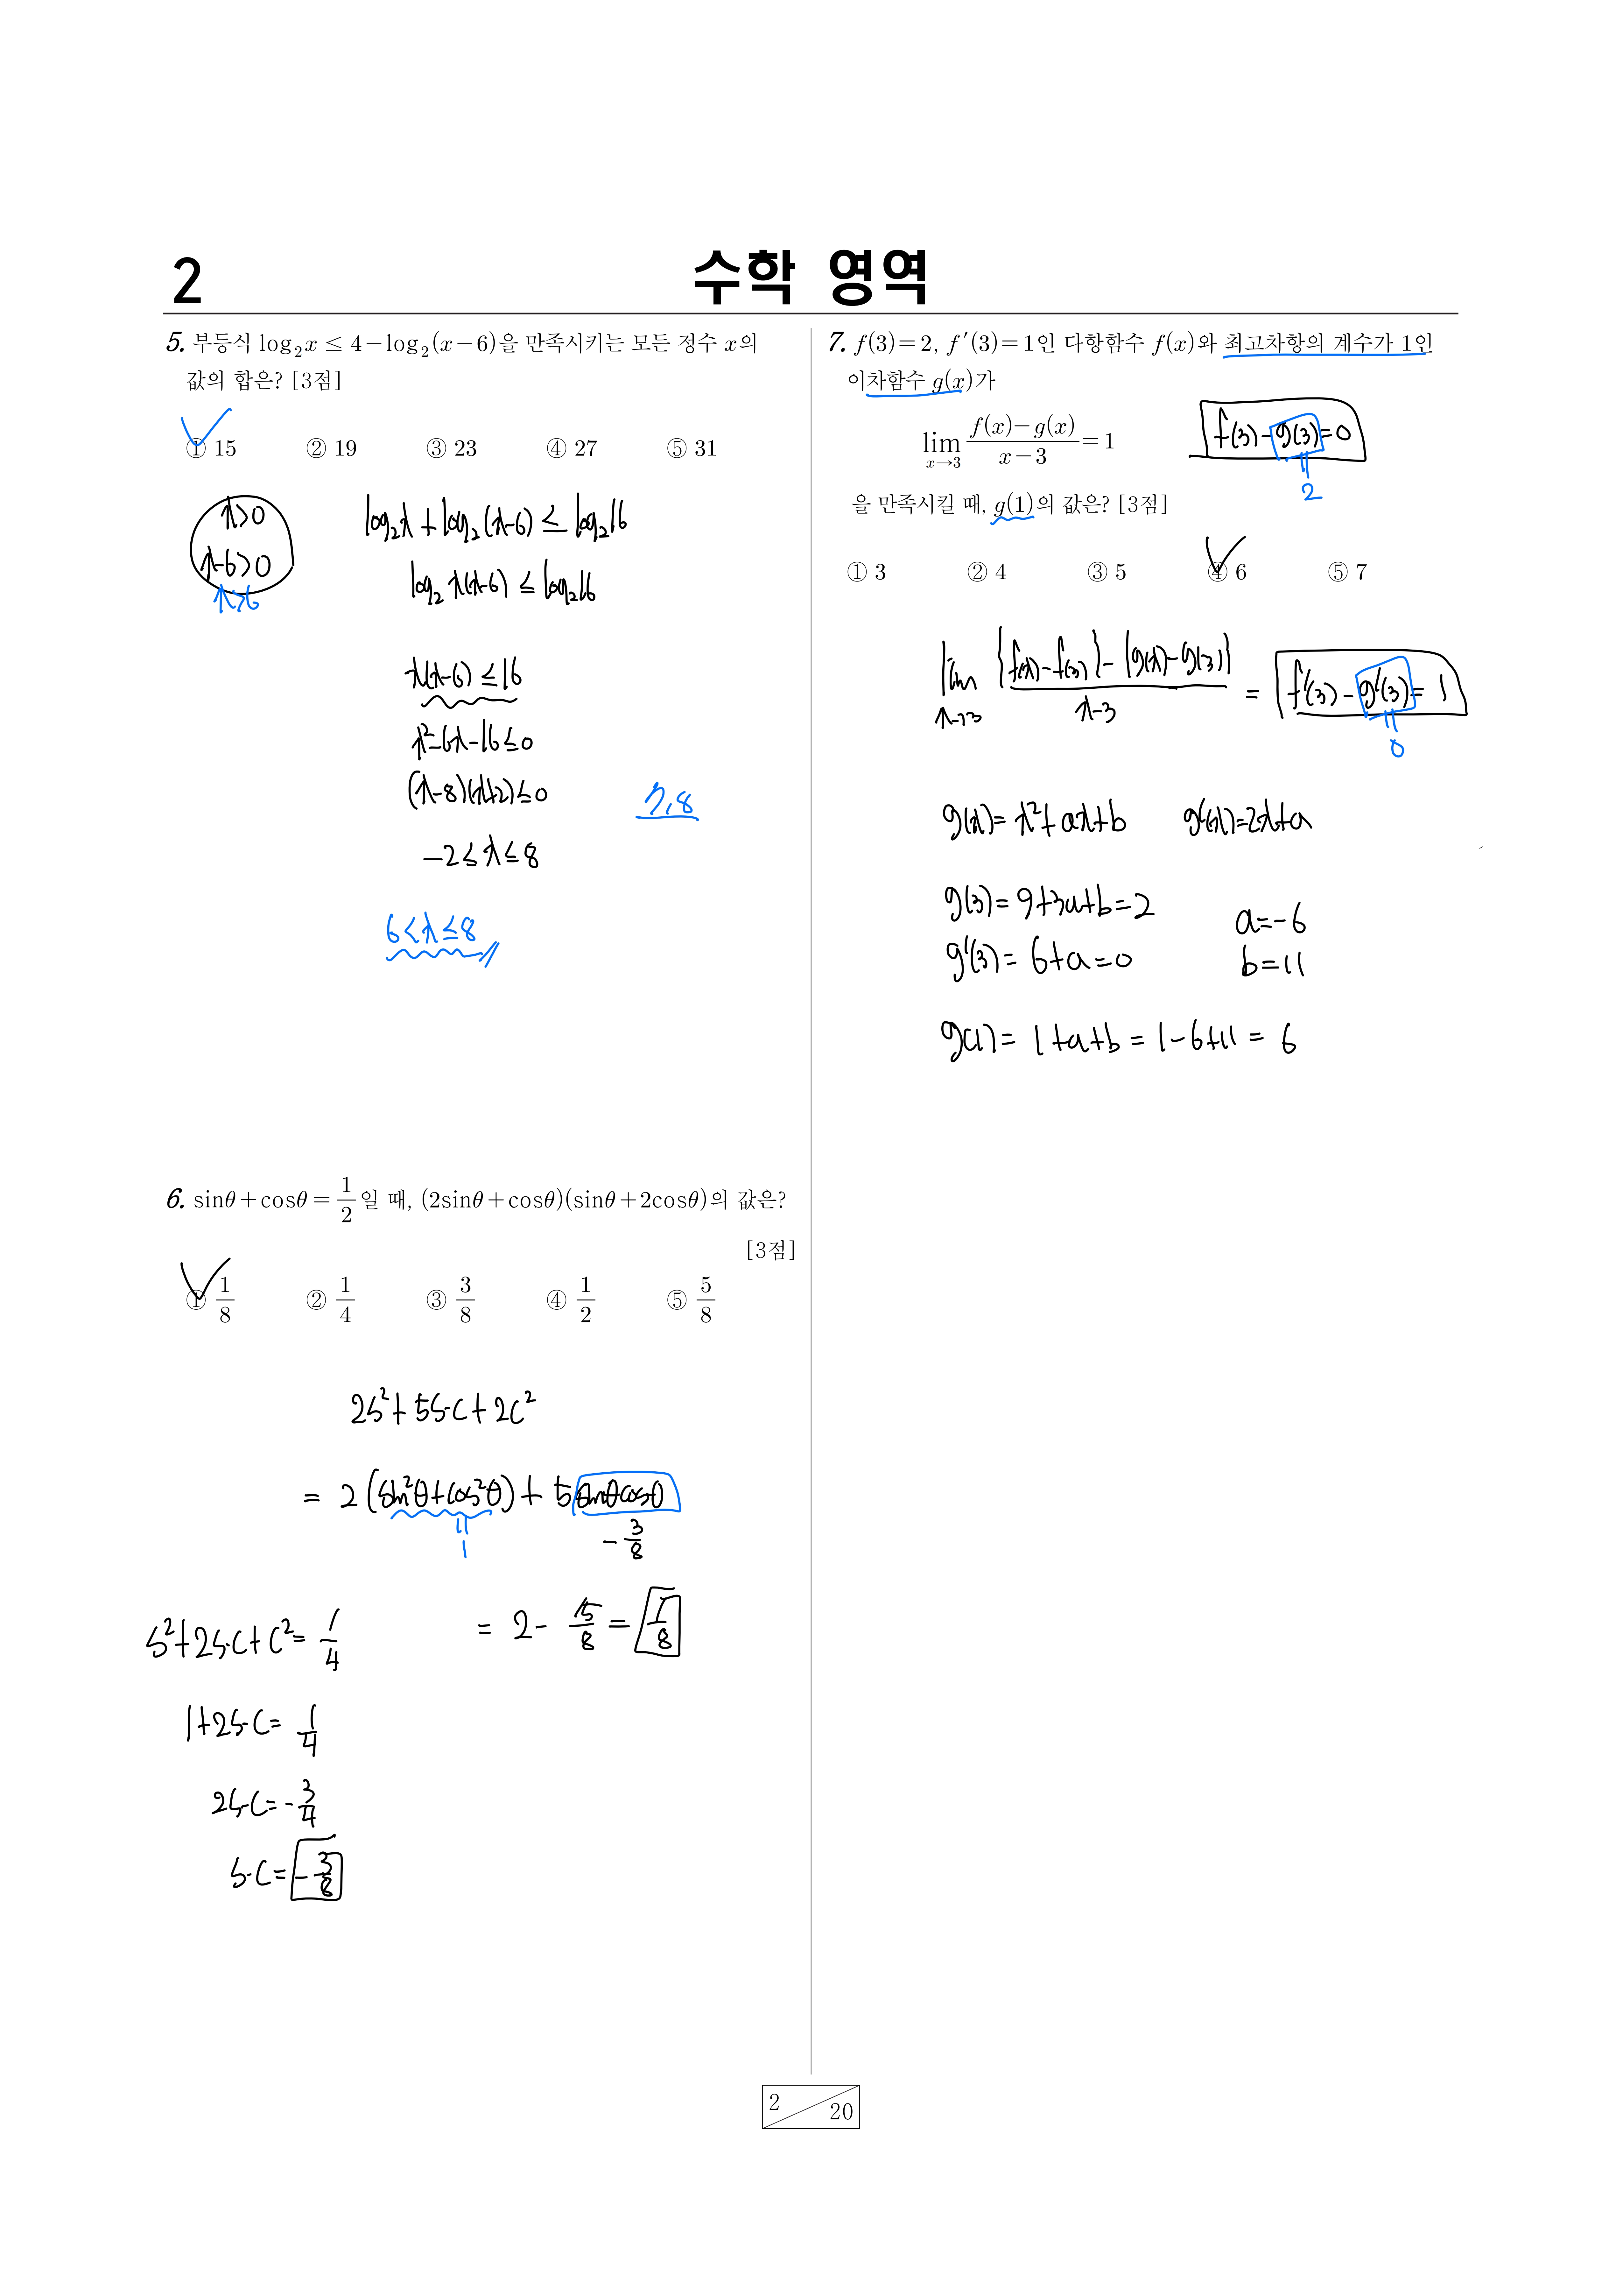 2
수학 영역
5. 부등식 log₂x ≤ 4−log₂(x−6)을 만족시키는 모든 정수 x의
값의 합은? [3점]
① 15 ② 19 ③ 23 ④ 27 ⑤ 31
x>0
x-6>0
x>6
log₂x + log₂(x-6) ≤ log₂16
log₂ x(x-6) ≤ log₂16
x(x-6) ≤ 16
x²-6x-16≤0
(x-8)(x+2)≤0
7, 8
-2≤x≤8
6<x≤8
6. sinθ+cosθ=1/2일 때, (2sinθ+cosθ)(sinθ+2cosθ)의 값은?
[3점]
① 1/8 ② 1/4 ③ 3/8 ④ 1/2 ⑤ 5/8
2s²+5s·c+2c²
= 2(sin²θ+cos²θ)+5sinθcosθ
1
-3/8
= 2-15/8=1/8
s²+2s·c+c²=1/4
1+2s·c=1/4
2s·c=-3/4
s·c=-3/8
7. f(3)=2, f′(3)=1인 다항함수 f(x)와 최고차항의 계수가 1인
이차함수 g(x)가
lim x→3 (f(x)−g(x))/(x−3)=1
f(3)-g(3)=0
2
을 만족시킬 때, g(1)의 값은? [3점]
① 3 ② 4 ③ 5 ④ 6 ⑤ 7
lim x→3 ({f(x)-f(3)}-{g(x)-g(3)})/(x-3) = f'(3)-g'(3)=1
0
g(x)=x²+ax+b g'(x)=2x+a
g(3)=9+3a+b=2
a=-6
g'(3)=6+a=0
b=11
g(1)=1+a+b=1-6+11=6
2
20